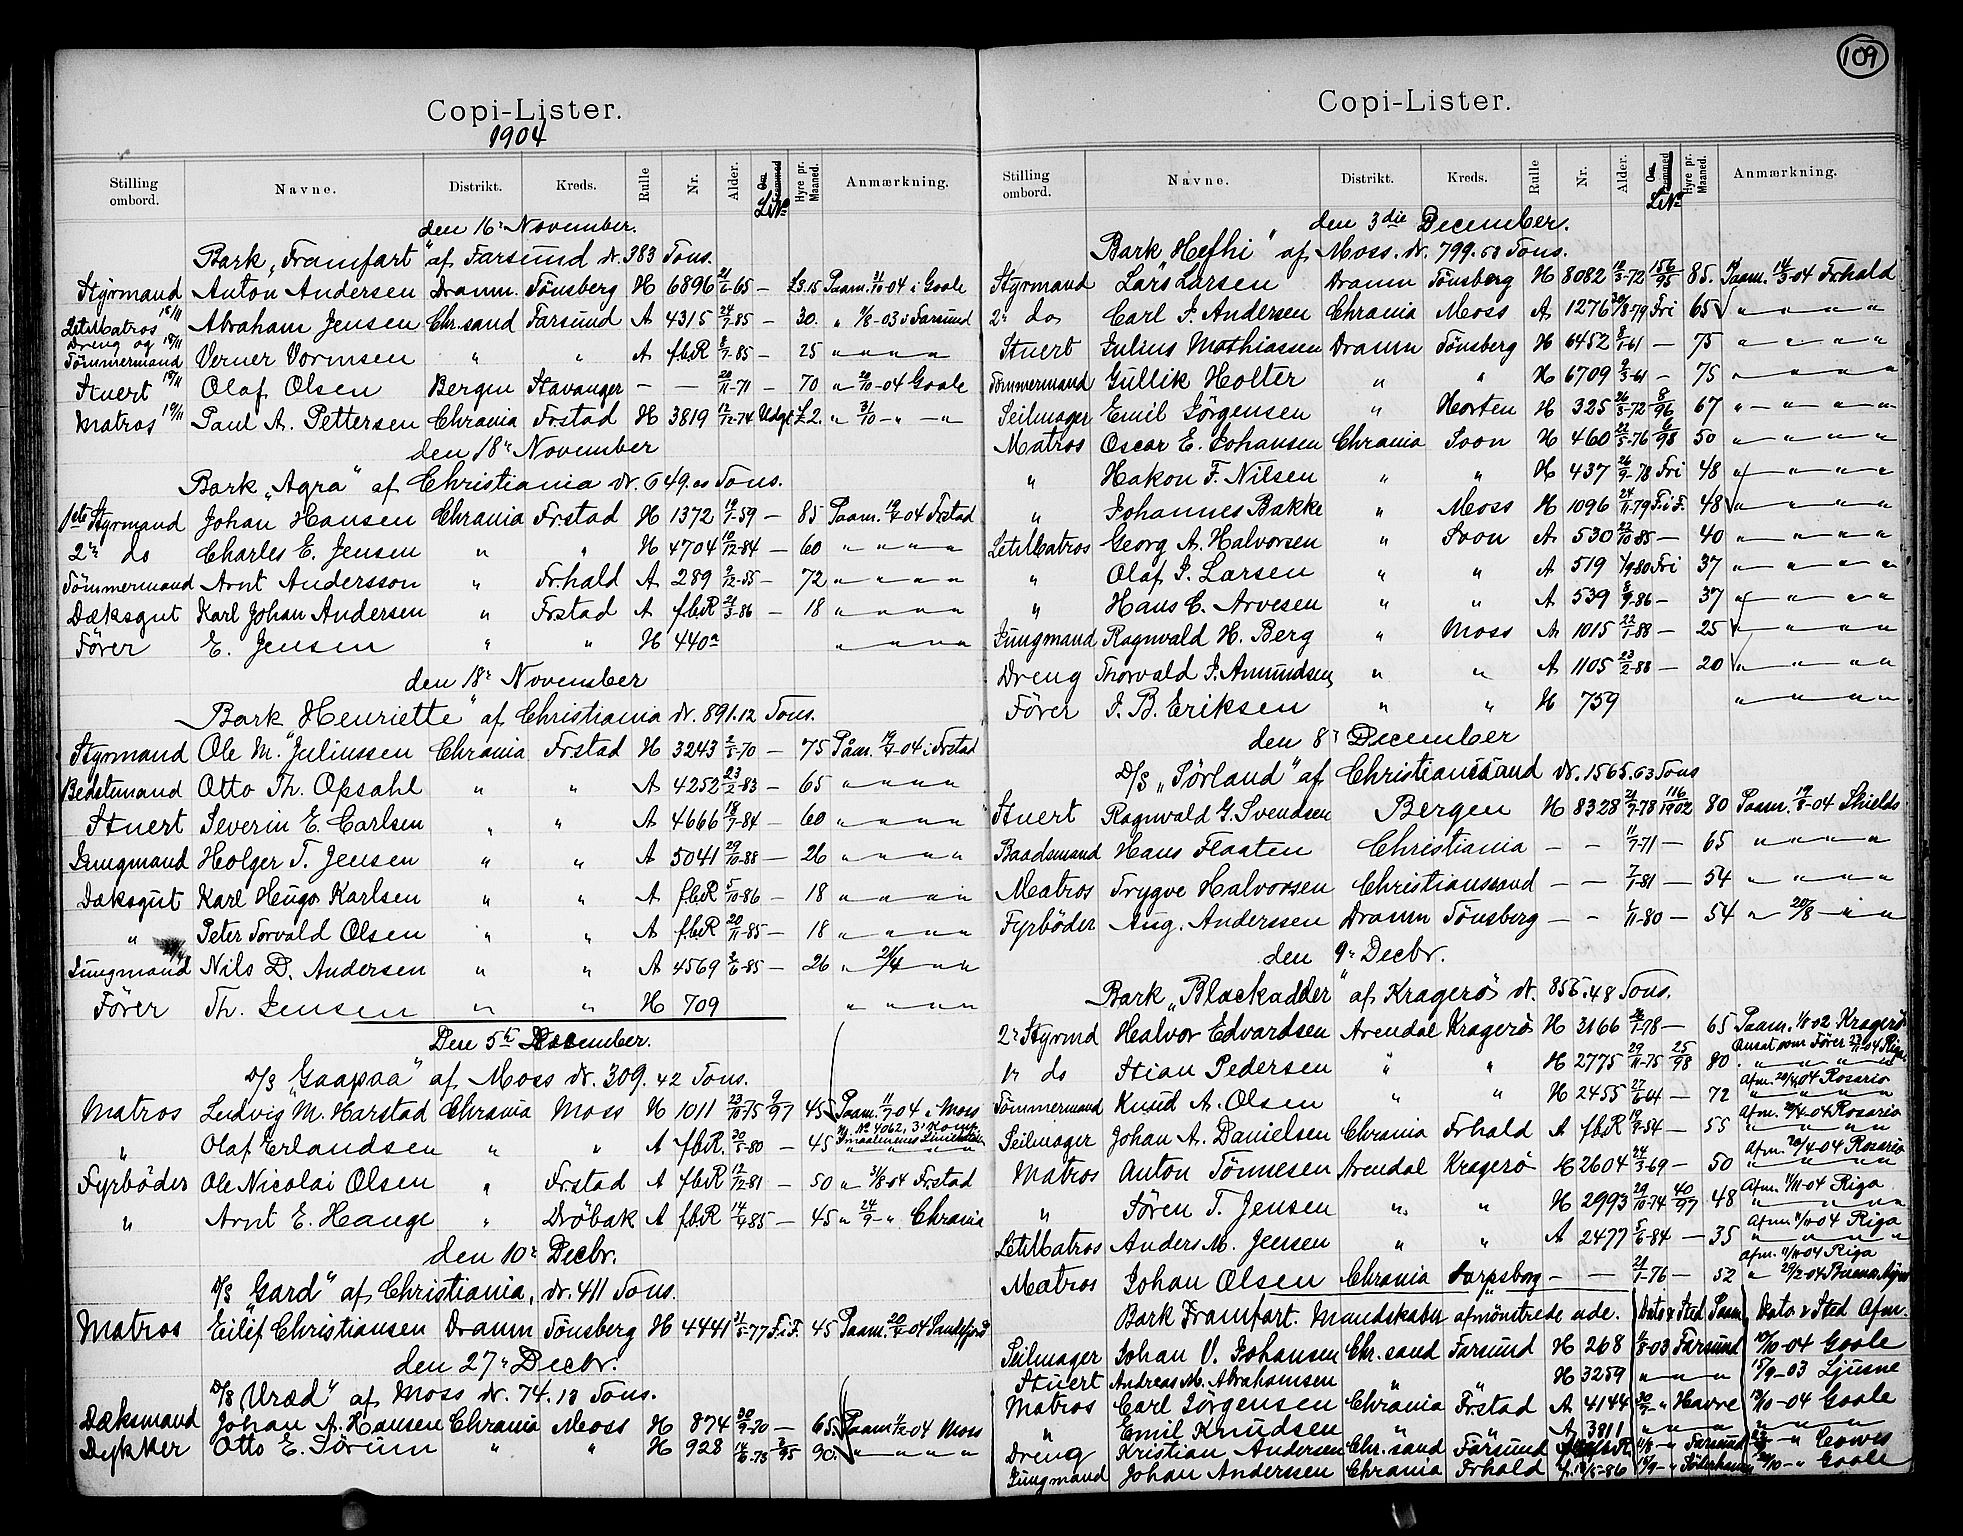 109
Copi-Lister.
1904
Stilling ombord. Navne. Distrikt. Kreds. Rulle Nr. Alder. Hyre pr. Maaned. Anmærkning.
den 16' November.
Bark "Framfart" af Farsund dr. 383 Tons.
Styrmand Anton Andersen Dramn. Tönsberg H 6896 21/6-65 — £3.15 Paam. 31/10-04 i Goole
LetMatros 18/11 Abraham Jensen Chr.sand Farsund A 4315 24/7-85 — 30. " 7/8-03 i Farsund
Dreng og Tömmermand 18/11 Verner Vormsen " " A fbR 8/7-85 — 25 " " " "
Stuert 18/11 Olaf Olsen Bergen Stavanger — — 20/11-71 — 70 " 20/10-04 Goole
Matros 19/11 Paul A. Pettersen Chrania Frstad H 3819 12/12-74 Udgt £2. " 31/10 - " — "
den 18' November
Bark "Agra" af Christiania dr. 649.03 Tons.
1ste Styrmand Johan Hansen Chrania Frstad H 1372 19/1-59 — 85 Paam. 19/4-04 Frstad
2' do Charles E. Jensen " " H 4704 10/12-84 — 60 " " " "
Tömmermand Arnt Andersson " Fr.hald A 289 9/12-55 — 72 " " " "
Dæksgut Karl Johan Andersen " Frstad A fbR 21/3-86 — 18 " " " "
Förer E. Jensen " " H 440a " " " "
den 18' November
Bark Henriette" af Christiania dr. 891.12 Tons.
Styrmand Ole M. Juliussen Chrania Frstad H 3243 2/5-70 — 75 Påm. 19/4-04 i Frstad
Bedstemand Otto Th. Opsahl " " A 4252 23/2-83 — 65 " " " "
Stuert Severin E. Carlsen " " A 4666 18/7-84 — 60 " " " "
Jungmand Holger T. Jensen " " A 5041 29/10-88 — 26 " " " "
Dæksgut Karl Hugo Karlsen " " A fbR 5/10-86 — 18 " " " "
" Peter Torvald Olsen " " A fbR 20/11-85 — 18 " " " "
Jungmand Nils D. Andersen " " A 4569 2/6-85 — 26 " 21/4 — " "
Förer Th. Jensen " " H 709 " " " "
Den 5te December.
D/S "Gaapaa" af Moss dr. 309.42 Tons.
Matros Ludvig M. Harstad Chrania Moss H 1011 23/10-75 9/97 45 Paam. 11/7-04 i Moss
No 4062, 3' Komp.
" Olaf Erlandsen " " A fbR. 30/5-80 — 45 " " " "
Fyrböder Ole Nicolai Olsen " Frstad A fbR 12/12-81 — 50 " 31/8-04 Frstad
" Arnt E. Hauge " Dröbak A fbR 14/9-85 — 45 " 24/9 - " Chrania
den 10' Decbr.
D/S "Gard" af Christiania, dr. 411 Tons.
Matros Eilef Christiansen Dramn Tönsberg H 4441 31/5-77 F.i F. 45 Paam. 20/9-04 Sandefjord
den 27' Decbr.
D/S "Uræd" af Moss dr. 74.13 Tons.
Dæksmand Johan A. Hansen Chrania Moss H 874 30/9-70 — 65. Paam. 1/12-04 Moss
Dykker Otto E. Sörum " " H 928 14/6-75 2/95 90. " " " "
Copi-Lister.
Stilling ombord. Navne. Distrikt. Kreds. Rulle Nr. Alder. Hyre pr. Maaned. Anmærkning.
den 3die December.
Bark "Hefhi" af Moss. dr. 799.53 Tons.
Styrmand Lars Larsen Dramn Tönsberg H 8082 12/3-72 156/95 85. Paam. 14/3-04 Frhald
2' do Carl J. Andersen Chrania Moss A 1276 30/8-79 Fri 65 " " " "
Stuert Julius Mathiassen Dramn Tönsberg H 6452 8/1-61 — 75 " " " "
Tömmermand Gullik Holter " " H 6709 2/3-61 — 75 " " " "
Seilmager Emil Jörgensen " Horten H 325 26/5-72 8/96 67 " " " "
Matros Oscar E. Johansen Chrania Soon H 460 22/5-76 6/98 50 " " " "
" Hakon F. Nilsen " " H 437 26/9-78 Fri 48 " " " "
" Johannes Bakke " Moss H 1096 24/11-79 F.i F. 48 " " " "
LetMatros Georg A. Halvorsen " Soon A 530 22/10-85 — 40 " " " "
" Olaf J. Larsen " " A 519 1/9-80 Fri 37 " " " "
" Hans C. Arvesen " " A 539 8/9-86 — 37 " " " "
Jungmand Ragnvald H. Berg " Moss A 1015 22/1-88 — 25 " " " "
Dreng Thorvald J. Amundsen " " A 1105 23/2-88 — 20 " " " "
Förer J. B. Eriksen " " H 759 " " " "
den 8' December
D/S "Sörland" af Christianssand dr. 1565.63 Tons
Stuert Ragnvald G. Svendsen Bergen H 8328 21/7-78 116/1902 80 Paam. 19/8-04 Shields
Baadsmand Hans Flaaten Christiania — — 11/7-71 — 65 " " " "
Matros Trygve Halvorsen Christianssand — — 7/1-81 — 54 " " " "
Fyrböder Aug. Anderssen Dramn Tönsberg — — 1/11-80 — 54 " 20/8 — " "
den 9' Decbr.
Bark "Blackadder" af Kragerö dr. 856.48 Tons.
2' Styrmd Halvor Edvardsen Arendal Kragerö H 3166 2/1-78 — 65 Paam. 1/8 02 Kragerö
Ansat som Förer 23/11-04 Riga
1' do Stian Pedersen " " H 2775 29/11-75 25/98 80. " " " "
Afm. 20/4 04 Rosario
Tömmermand Knud A. Olsen " " H 2455 27/6-04 — 72 " " " "
Afm. 20/4-04 Rosario
Seilmager Johan A. Danielsen Chrania Frhald A fbR 19/9-54 — 55 " " " "
Afm. 20/4-04 Rosario
Matros Anton Tönnesen Arendal Kragerö H 2604 24/3-69 — 50 " " " "
Afm. 11/11-04 Riga
" Sören T. Jensen " " H 2993 29/10-74 40/97 48 " " " "
Afm. 11/11-04 Riga
LetMatros Anders M. Jensen " " A 2477 5/6-84 — 35 " " " "
Afm. 11/11-04 Riga
Matros Johan Olsen Chrania Sarpsborg — — 21/1-76 — 52 " 29/2-04 Buenos Ayres
Bark Framfart. Mandskaber afmönstrede ude. Dato & Sted Paam. Dato & Sted Afm.
Seilmager Johan V. Johansen Chr.sand Farsund H 268 1/8-03 Farsund 19/10-04 Goole
Stuert Andreas M. Abrahamsen " " H 3259 " " " 15/9-03 Ljusne
Matros Carl Jörgensen Chrania Frstad A 4144 30/7 " Havre 13/10-04 Goole
" Emil Knudsen " " A 3811 " " " " " "
Dreng Kristian Andersen Chr.sand Farsund 1/8 - " Farsund " Cowes
Jungmand Johan Anderssen Chrania Frhald 15/9- " Söderhamn 20/10 - " Goole